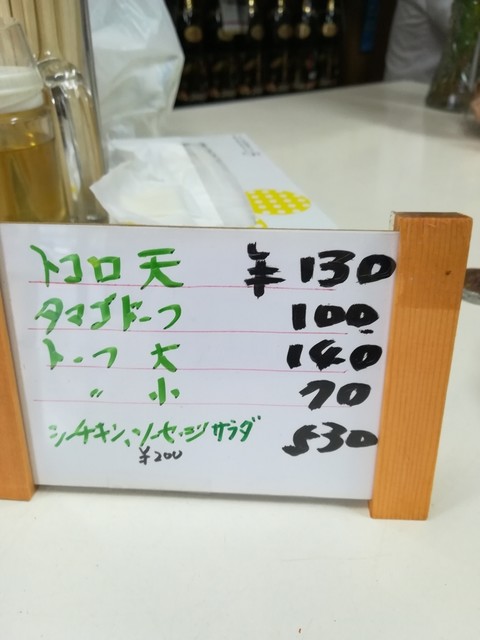 トコロ天 ¥130
タマゴドーフ 100
トーフ 大 140
〃 小 70
シーチキン、ソーセージサラダ 530
¥200